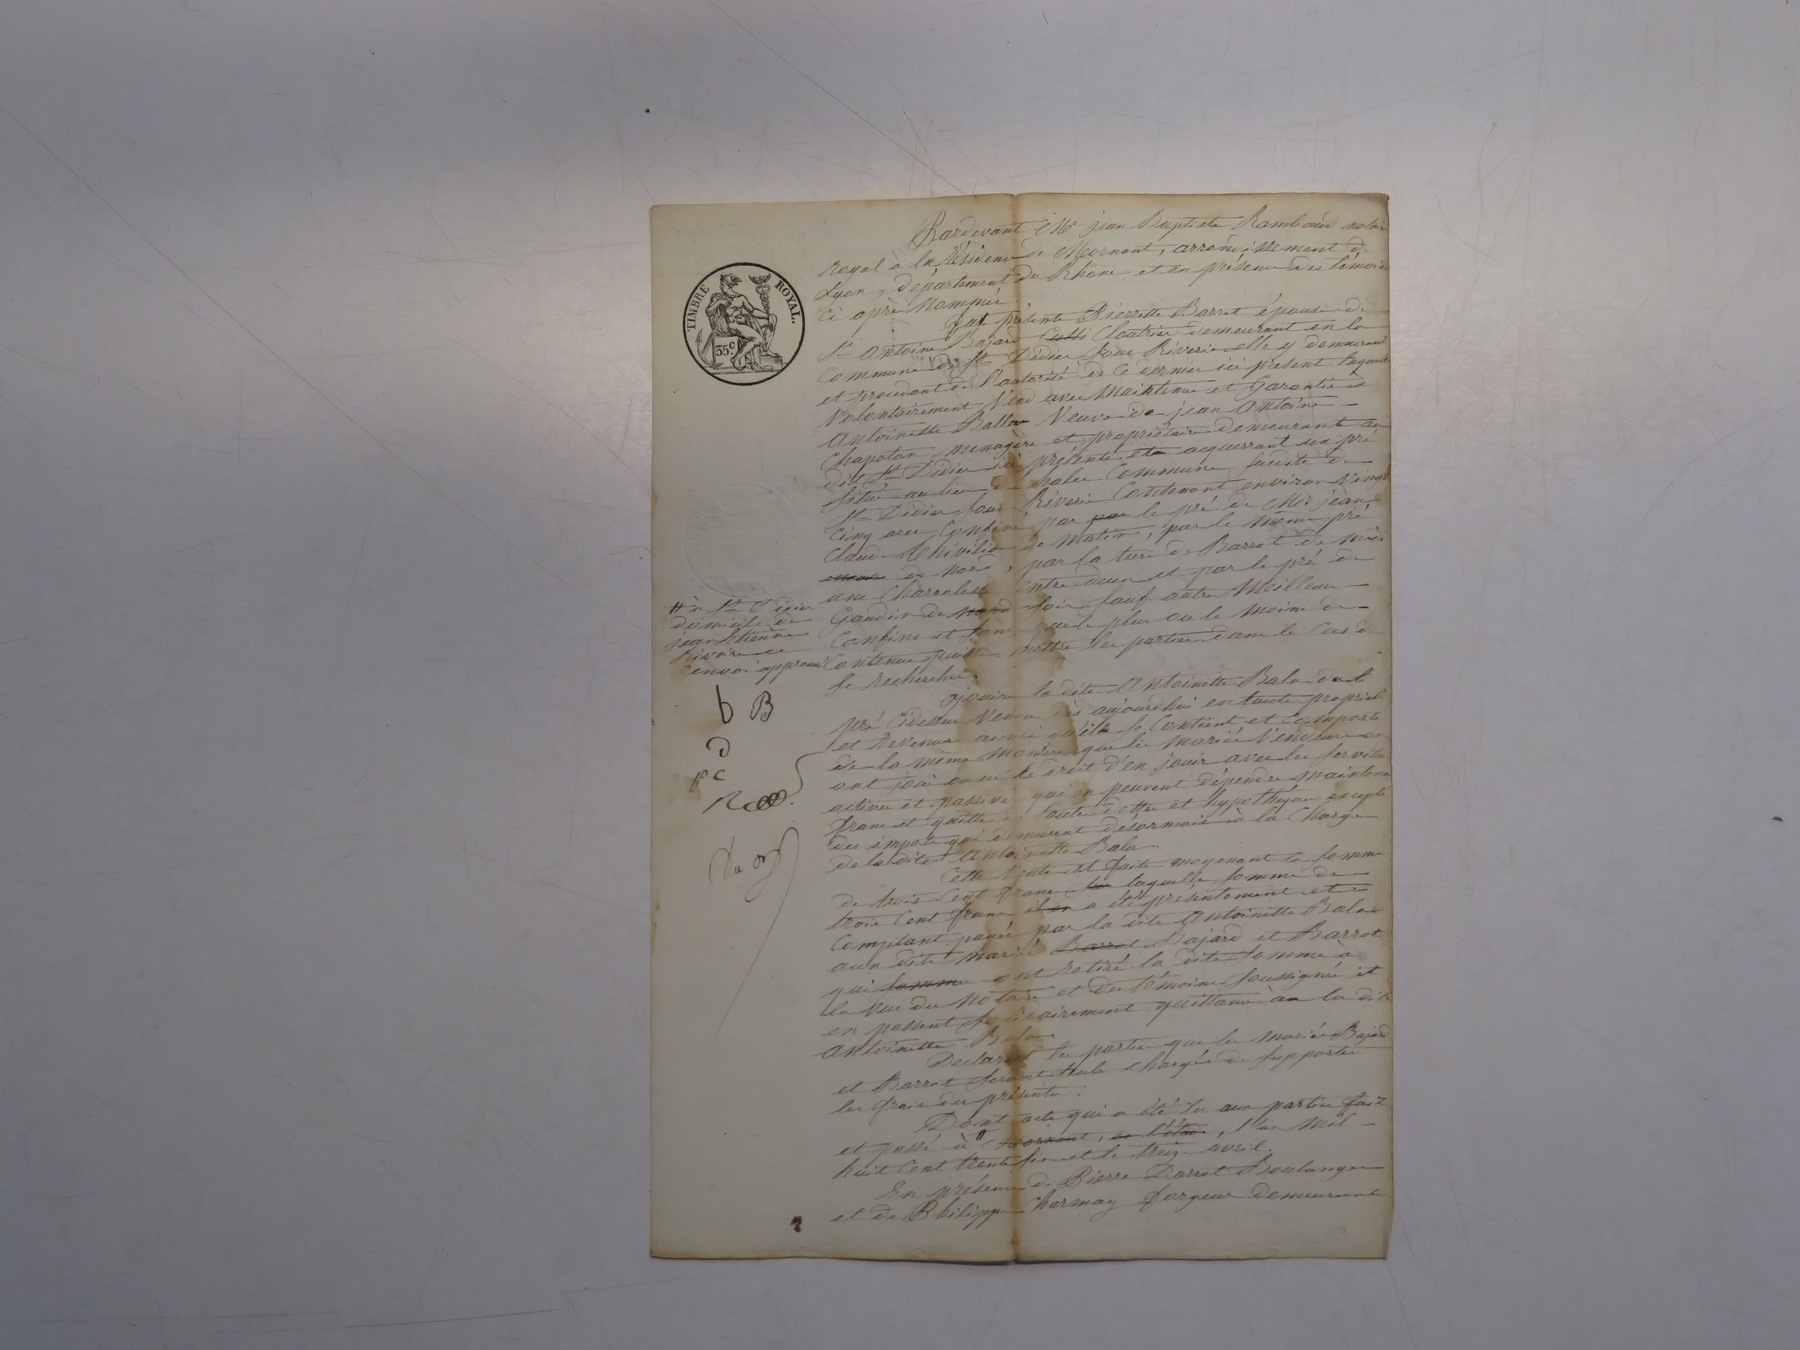 TIMBRE ROYAL.
35 c
Pardevant Me jean Baptiste Rambaud notaire
royal à la Résidence de Mornant, arrondissement de
Lyon, département du Rhône et en présence des témoins
Ci après Nommés
fut présente Pierrette Barrot épouse de
Sr Antoine Bajard Cloutier demeurant en la
Commune de St Didier sous Riverie elle y demeurant
et procédant de l'autorité de Ce dernier ici présent laquelle
Volontairement Vend avec Maintenue et Garantie à
Antoinette Balla Veuve de jean Antoine
Chapotan, menagère et propriétaire demeurant au
dit St Didier ici présente et acquerrant un pré
Situé au lieu de Commune susdite de
St Didier sous Riverie Contenant environ Vingt
Cinq ares Confiné par par le pré de Mr jean
Claude de matin, par le même pré
de nord, par la terre de Barrot de midi
une Charrolist entre deux et par le pré de
Gaudin de nord soir sauf autres Meilleurs
Confins et sans que le plus ou le moins de
Contenue puisse mettre les parties dans le Cas de
Se rechercher.
# à St Didier
domicile de
jean Etienne
Rivoire ce
renvoi approuvé
b B
d
pc
jouira la dite Antoinette Bala dudit
pré Cidessus Vendu dès aujourdhui en toute propriété
et Revenus ainsi qu'il se Contient et Comporte
de la même manière que les Mariés Vendeurs en
ont joui ou eu le droit d'en jouir avec les servitudes
actives et passives qui en peuvent dépendre maintenu
franc et quitte de toute dette et hypothèque excepté
des impots qui demeurent désormais à la Charge
de la dite Antoinette Bala.
Cette Vente est faite moyenant la somme
de trois Cent francs laquelle somme de
trois Cent francs a été présentement et
Comptant payée par la dite Antoinette Bala
aux dits Mariés Barrot Bajard et Barrot
qui somme ont retiré la dite somme à
la Vue du Notaire et des témoins soussignés et
en passent Solidairement quittance à la dite
Antoinette Bala.
Déclarent les parties que les Mariés Bajard
et Barrot seront seuls chargés de supporter
les frais des présentes.
Dont acte qui a été lu aux parties fait
et passé à # Mornant, en l'étude, l'an Mil
huit Cent trente six et le treize avril.
En présence de Pierre Darrot Boulanger
et de Philippe Charmay forgeur demeurant